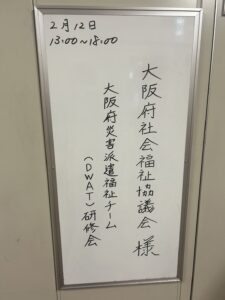 2月12日
13:00〜18:00
大阪府社会福祉協議会 様
大阪府災害派遣福祉チーム
(DWAT)研修会